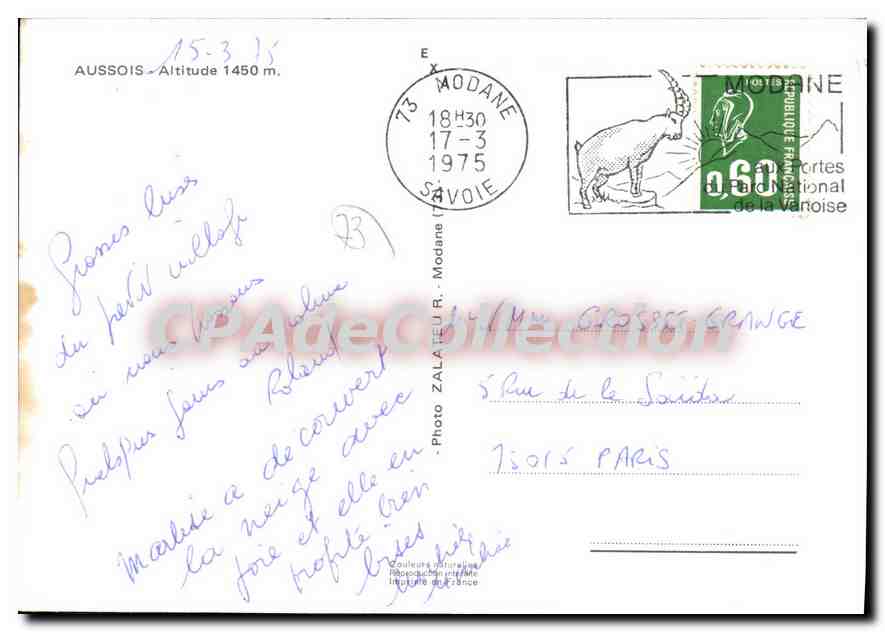 15-3 75
AUSSOIS - Altitude 1450 m.
E
X
73 MODANE
18H30
17-3
1975
SAVOIE
POSTES
REPUBLIQUE FRANÇAISE
0,60
MODANE
aux Portes
du Parc National
de la Vanoise
73
Grosses bises
du petit village
où nous passons
quelques jours au calme
Roland
Marlise a découvert
la neige avec
joie et elle en
profite bien
bises
Photo ZALATEU R. - Modane
CPAdeCollection
GROSSE GRANGE
5 Rue de la
75015 PARIS
Couleurs naturelles
Reproduction interdite
Imprimé en France